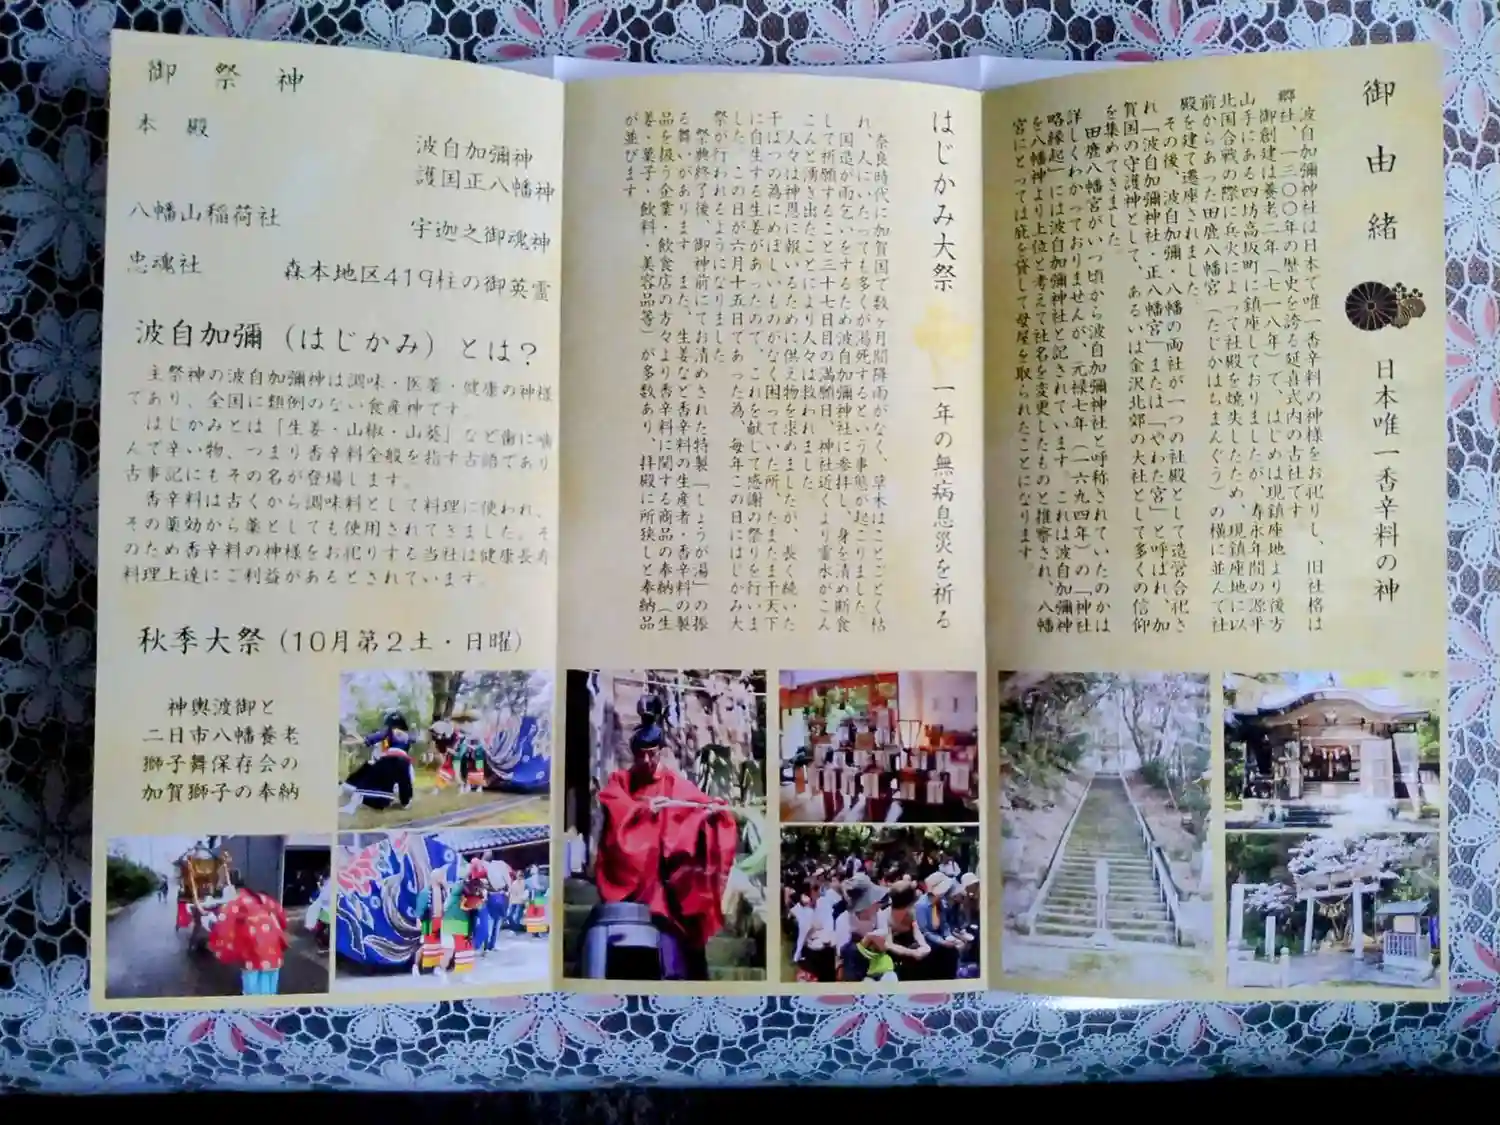 御由緒
日本唯一香辛料の神
波自加彌神社は日本で唯一香辛料の神様をお祀りし、旧社格は
郷社、一三〇〇年の歴史を誇る延喜式内の古社です。
御創建は養老二年(七一八年)で、はじめは現鎮座地より後方
山手にある四坊高坂町に鎮座しておりましたが、寿永年間の源平
北国合戦の際に兵火によって社殿を焼失したため、現鎮座地に以
前からあった田鹿八幡宮(たじかはちまんぐう)の横に並んで社
殿を建て遷座されました。
その後、波自加彌・八幡の両社が一つの社殿として造営合祀さ
れ「波自加彌神社・正八幡宮」または「やわた宮」と呼ばれ、加
賀国の守護神として、あるいは金沢北郊の大社として多くの信仰
を集めてきました。
田鹿八幡宮がいつ頃から波自加彌神社と呼称されていたのかは
詳しくわかっておりませんが、元禄七年(一六九四年)の「神社
略縁起」には波自加彌神社と記されています。これは波自加彌神
を八幡神より上位と考えて社名を変更したものと推察され、八幡
宮にとっては庇を貸して母屋を取られたことになります。
はじかみ大祭
一年の無病息災を祈る
奈良時代に加賀国で数ヶ月間降雨がなく、草木はことごとく枯
れ、人にいたっても多くが渇死するという事態が起こりました。
国造が雨乞いをするため波自加彌神社に参拝し、身を清め断食
して祈願すること三十七日目の満願日、神社近くより霊水がこん
こんと湧き出たことにより人々は救われました。
人々は神恩に報いるために供え物を求めましたが、長く続いた
干ばつの為にめぼしいものがなく困っていた所、たまたま干天下
に自生する生姜があったので、これを献じて感謝の祭りを行いま
した。この日が六月十五日であった為、毎年この日にはじかみ大
祭が行われるようになりました。
祭典終了後、御神前にてお清めされた特製「しょうが湯」の振
る舞いがあります。また、生姜など香辛料の生産者・香辛料の製
品を扱う企業・飲食店の方々より香辛料に関する商品の奉納(生
姜・菓子・飲料・美容品等)が多数あり、拝殿に所狭しと奉納品
が並びます。
御祭神
本殿
波自加彌神
護国正八幡神
八幡山稲荷社
宇迦之御魂神
忠魂社
森本地区419柱の御英霊
波自加彌(はじかみ)とは?
主祭神の波自加彌神は調味・医薬・健康の神様
であり、全国に類例のない食産神です。
はじかみとは「生姜・山椒・山葵」など歯に噛
んで辛い物、つまり香辛料全般を指す古語であり
古事記にもその名が登場します。
香辛料は古くから調味料として料理に使われ、
その薬効から薬としても使用されてきました。そ
のため香辛料の神様をお祀りする当社は健康長寿
料理上達にご利益があるとされています。
秋季大祭(10月第2土・日曜)
神輿渡御と
二日市八幡養老
獅子舞保存会の
加賀獅子の奉納